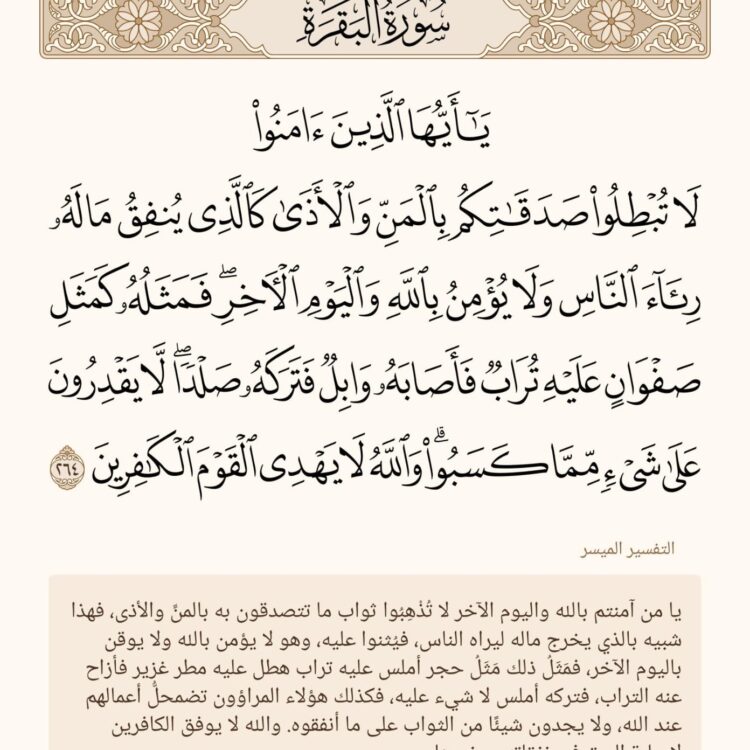 سُورَةُ البَقَرَةِ
يَـٰٓأَيُّهَا ٱلَّذِينَ ءَامَنُوا۟
لَا تُبْطِلُوا۟ صَدَقَـٰتِكُم بِٱلْمَنِّ وَٱلْأَذَىٰ كَٱلَّذِى يُنفِقُ مَالَهُۥ
رِئَآءَ ٱلنَّاسِ وَلَا يُؤْمِنُ بِٱللَّهِ وَٱلْيَوْمِ ٱلْـَٔاخِرِ ۖ فَمَثَلُهُۥ كَمَثَلِ
صَفْوَانٍ عَلَيْهِ تُرَابٌ فَأَصَابَهُۥ وَابِلٌ فَتَرَكَهُۥ صَلْدًا ۖ لَّا يَقْدِرُونَ
عَلَىٰ شَىْءٍ مِّمَّا كَسَبُوا۟ ۗ وَٱللَّهُ لَا يَهْدِى ٱلْقَوْمَ ٱلْكَـٰفِرِينَ ٢٦٤
التفسير الميسر
يا من آمنتم بالله واليوم الآخر لا تُذْهِبُوا ثواب ما تتصدقون به بالمنِّ والأذى، فهذا
شبيه بالذي يخرج ماله ليراه الناس، فيُثنوا عليه، وهو لا يؤمن بالله ولا يوقن
باليوم الآخر، فمَثَلُ ذلك مَثَلُ حجر أملس عليه تراب هطل عليه مطر غزير فأزاح
عنه التراب، فتركه أملس لا شيء عليه، فكذلك هؤلاء المراؤون تضمحلُّ أعمالهم
عند الله، ولا يجدون شيئًا من الثواب على ما أنفقوه. والله لا يوفق الكافرين